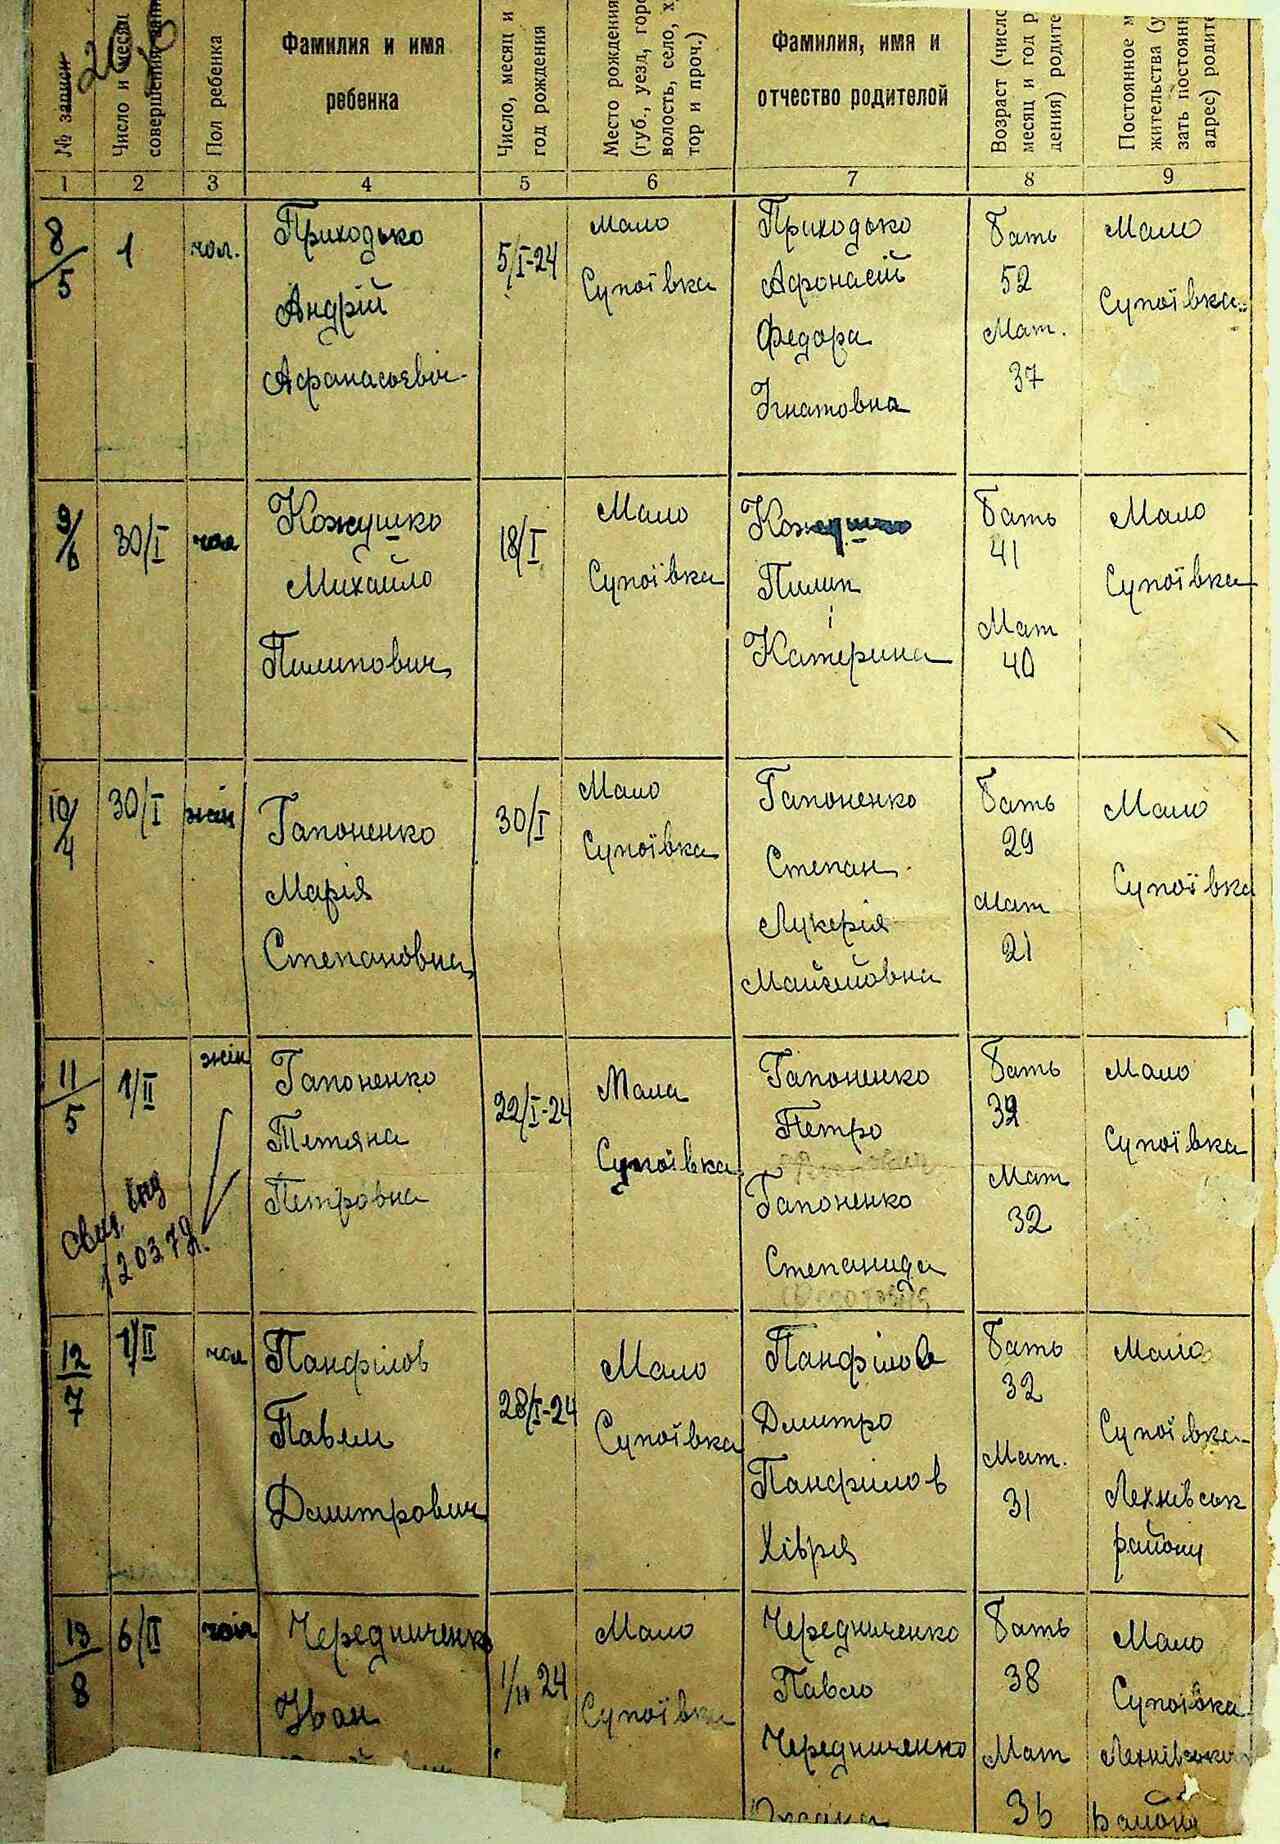 № запис
Число и месяц
совершения
Пол ребенка
Фамилия и имя
ребенка
Число, месяц и
год рождения
Место рождения
(губ., уезд, гор
волость, село, х
тор и проч.)
Фамилия, имя и
отчество родителей
Возраст (число
месяц и год р
дения) родите
Постоянное м
жительства (у
зать постоянн
адрес) родите
1 2 3 4 5 6 7 8 9
8/5
1
чол.
Приходько
Андрій
Афанасьевіч
5/I-24
Мало
Супоївка
Приходько
Афонасій
Федора
Ігнатовна
Бать
52
Мат.
37
Мало
Супоївка
9/6
30/I
чол
Кожушко
Михайло
Пилипович
18/I
Мало
Супоївка
Кожушко
Пилип
і
Катерина
Бать
41
Мат
40
Мало
Супоївка
10/4
30/I
жін
Гапоненко
Марія
Степановна
30/I
Мало
Супоївка
Гапоненко
Степан
Лукерія
Бать
29
Мат
21
Мало
Супоївка
11/5
1/II
жін
Свид. выд
Гапоненко
Тетяна
Петровна
22/I-24
Мала
Супоївка
Гапоненко
Петро
Гапоненко
Степанида
Бать
32
Мат
32
Мало
Супоївка
12/7
1/II
чол
Панфілов
Павло
Дмитрович
28/I-24
Мало
Супоївка
Панфілов
Дмитро
Панфілов
Хівря
Бать
32
Мат.
31
Мало
Супоївка
Лехнівськ
району
13/8
6/II
чол
Чередниченко
Іван
1/II 24
Мало
Супоївка
Чередниченко
Павло
Чередниченко
Бать
38
Мат
36
Мало
Супоївка
Лехнівськ
району